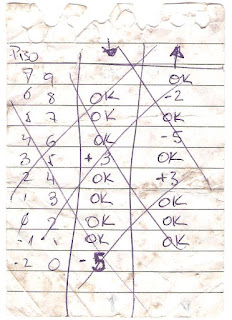 Piso ↓ ↑
7 9 OK
6 8 OK -2
5 7 OK OK
4 6 OK -5
3 5 +3 OK
2 4 OK +3
1 3 OK OK
0 2 OK OK
-1 1 OK OK
-2 0 -5